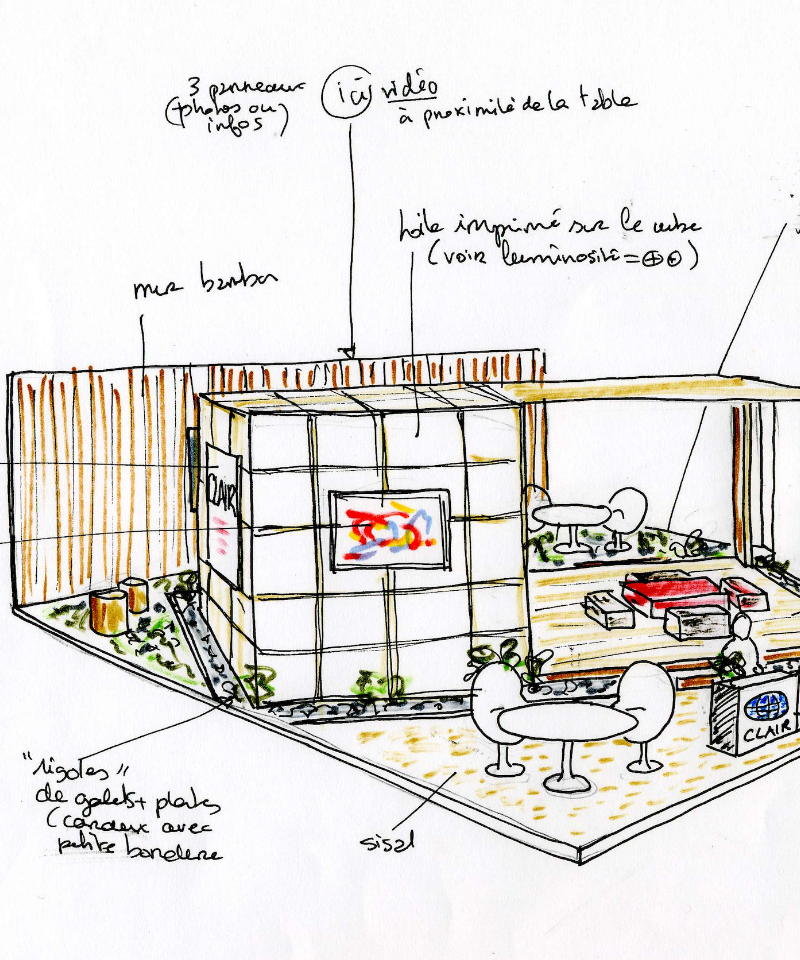 3 panneaux
(photos ou
infos)
ici vidéo
à proximité de la table
toile imprimé sur le cube
(voir luminosité = ⊕⊕)
mur bambou
CLAIR
CLAIR
"rigoles"
de galets + plantes
avec
petite bordure
sisal